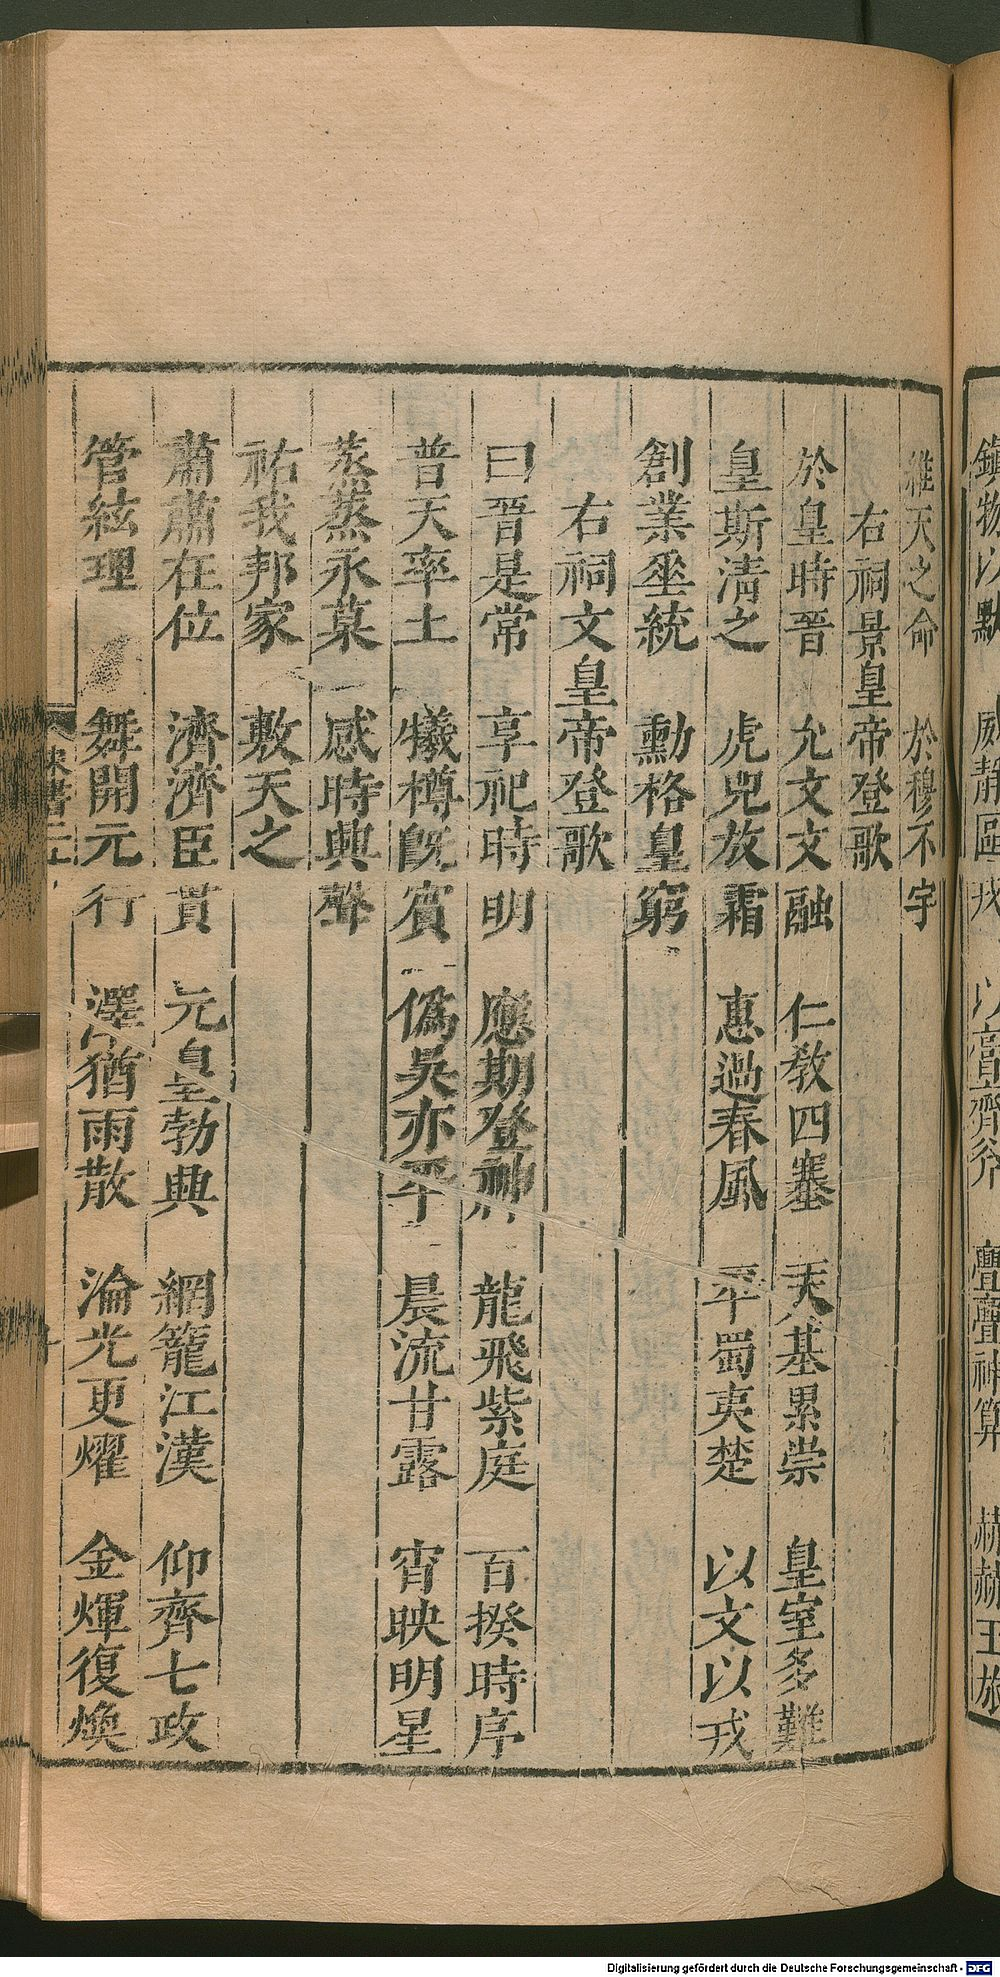 鎮物以默　威靜區戎　以　齊　　亹亹神算　赫赫王旅
維天之命　於穆不宇
右祠景皇帝登歌
於皇時晉　允文文融　仁教四塞　天基累崇　皇室多難
皇斯清之　虎兕放霜　惠過春風　平蜀夷楚　以文以戎
創業垂統　勳格皇窮
右祠文皇帝登歌
曰晉是常　享祀時明　應期登神　龍飛紫庭　百揆時序
普天率土　犧樽旣賓　僞吳亦平　晨流甘露　宵映明星
蒸蒸永慕　感時興聲
祐我邦家　敷天之
肅肅在位　濟濟臣貫　元皇勃興　網籠江漢　仰齊七政
管絃理　舞開元行　澤猶雨散　淪光更燿　金煇復煥
Digitalisierung gefördert durch die Deutsche Forschungsgemeinschaft - DFG